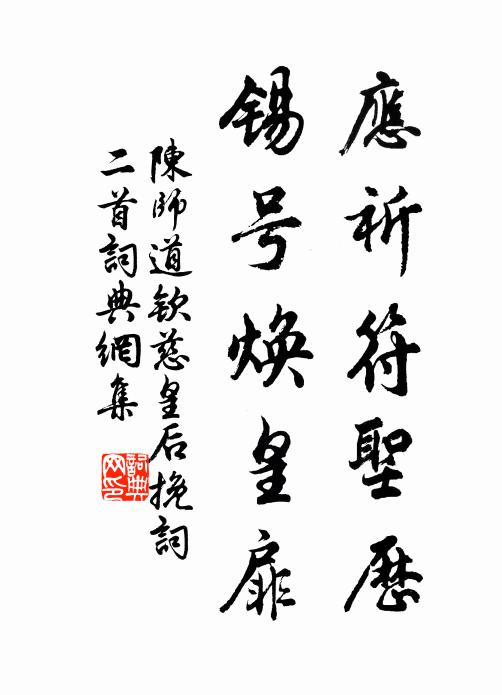 應祈符聖歷
锡号煥皇扉
陳師道欽慈皇后挽詞
二首詞典網集
詞典
网印